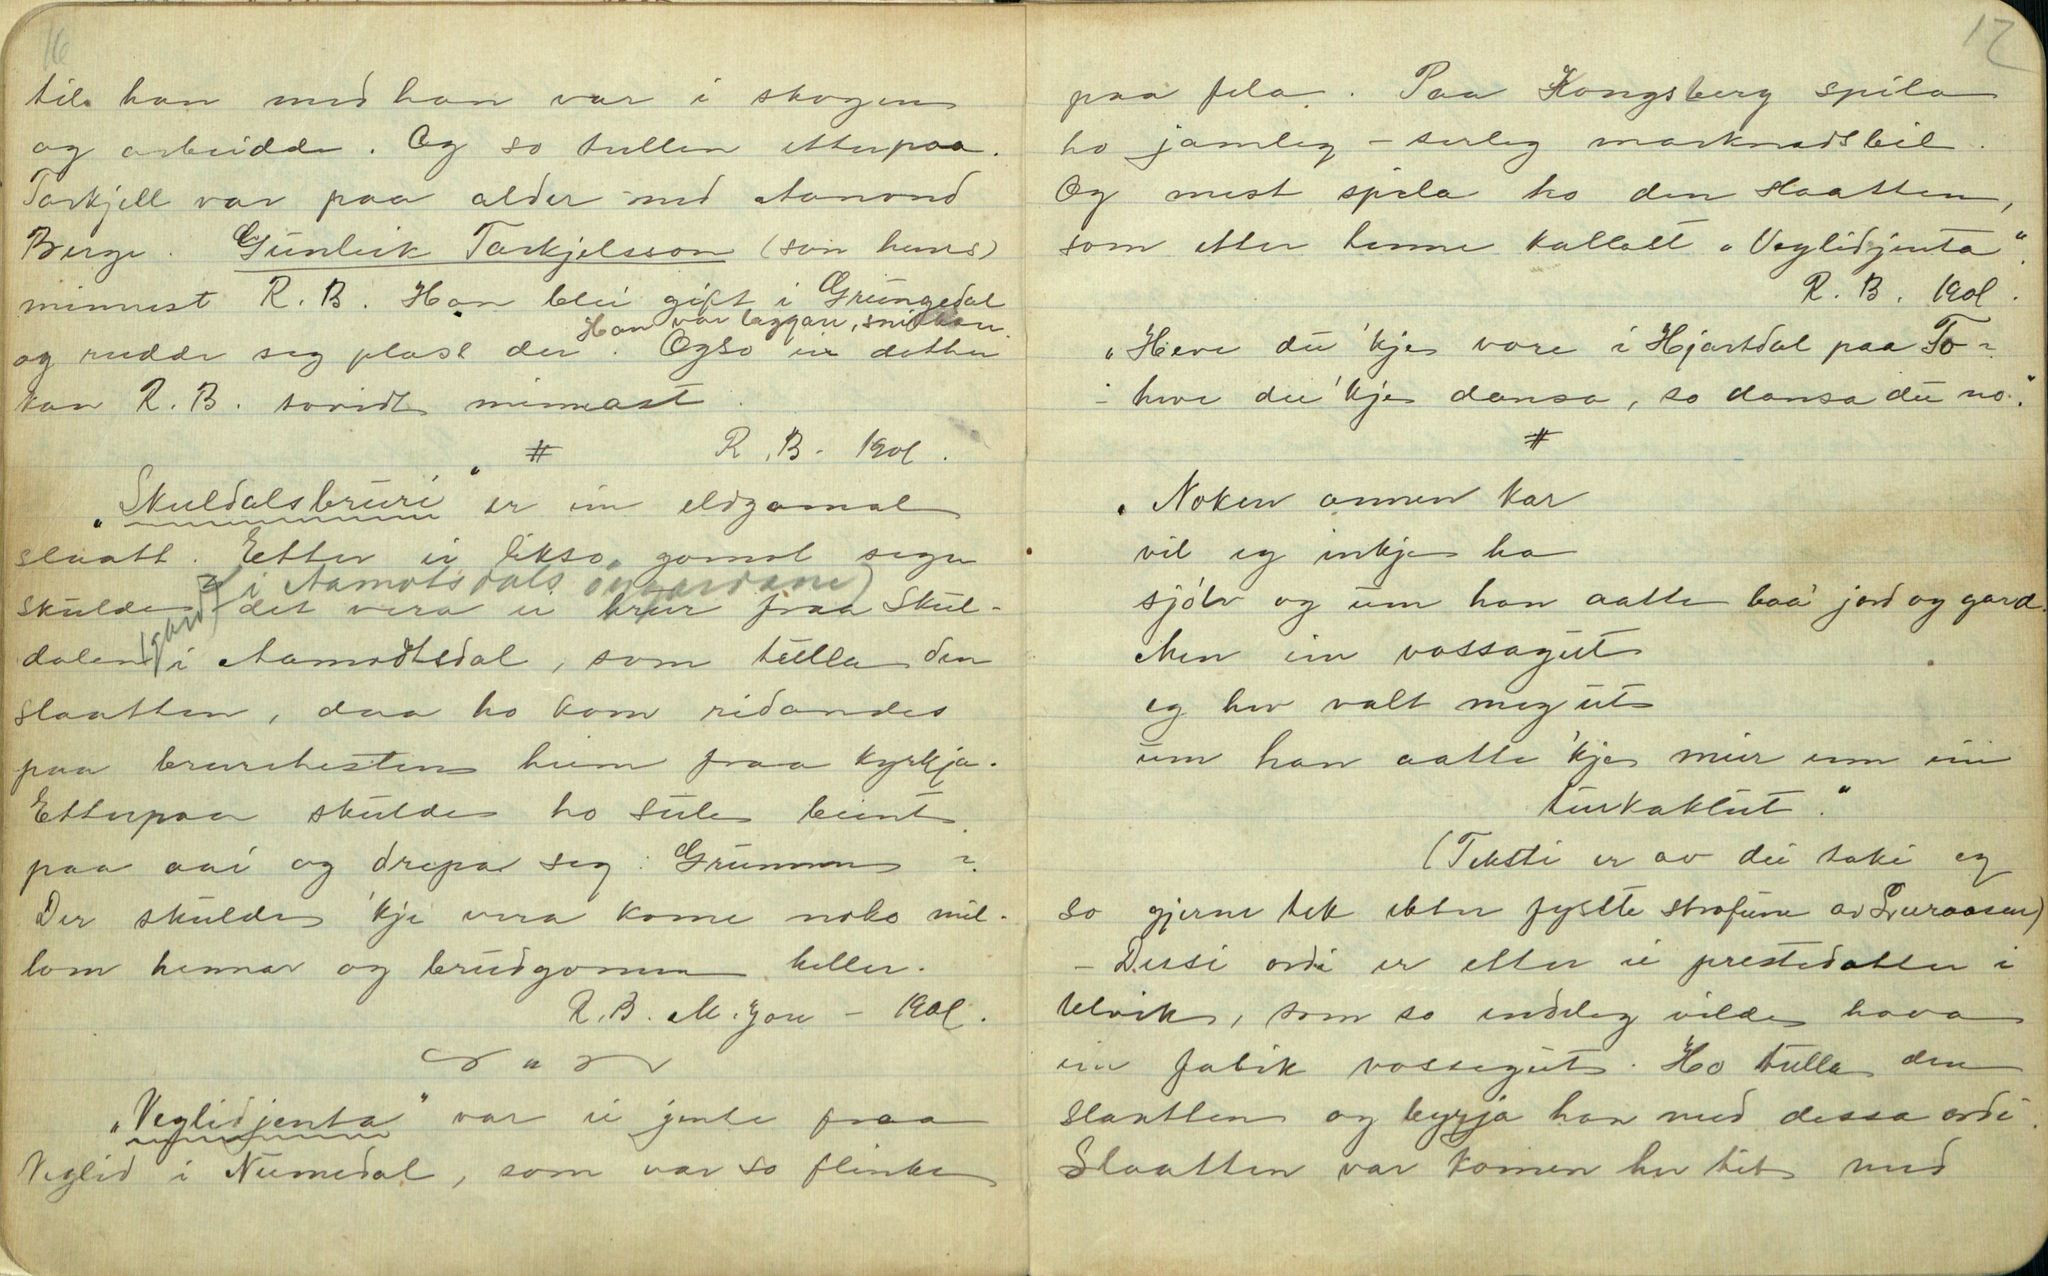 16
til han med han var i skogen
og arbeidde. Og so tullen etterpaa.
Torkjell var paa alder med Aamond
Berge. Gunleik Torkjelsson (son hens)
minnest R. B. Han blei gift i Grungedal
Han var laggar, snikkar.
og rudde seg plass der. Ogso ei dotter
kan R. B. sovidt minnast.
# R. B. 1901.
"Skuldalsbruri" er ein eldgamal
slaatt. Etter ei likso gomol segn
(gard i Aamotsdals øygardane)
skulde det vera ei brur fraa Skul-
dalen i Aamodtsdal, som tulla den
slaatten, daa ho kom ridandes
paa brurehesten heim fraa kyrkja.
Etterpaa skulde ho sule beint
paa aai og drepa seg. Grunnen ?
Der skulde 'kje vera kome noko mil-
lom hennar og brudgomen heller.
R. B. M. Gou - 1901.
"Veglidjenta" var ei jente fraa
Veglid i Numedal, som var so flinke
17
paa fela. Paa Kongsberg spila
ho jamleg - serleg marknadsbil.
Og mest spila ho den slaatten,
som etter henne kallast "Veglidjenta".
R. B. 1901.
"Heve du 'kje vore i Hjartdal paa To -
- heve du 'kje dansa, so dansa du no."
#
"Noken annen kar
vil eg inkje ha
sjølv og um han aatte baa' jord og gard.
Men ein vossagut
eg hev valt meg ut
um han aatte 'kje meir enn ein
turkaklut."
(Teksti er av dei taki eg
so gjerne tek etter fyste strofune av Luraasen)
- Dessi ordi er etter ei prestedotter i
Ulvik, som so endeleg vilde hava
ein fatik vossegut. Ho tulla den
slaatten og byrja han med dessa ordi.
Slaatten var komen her til med